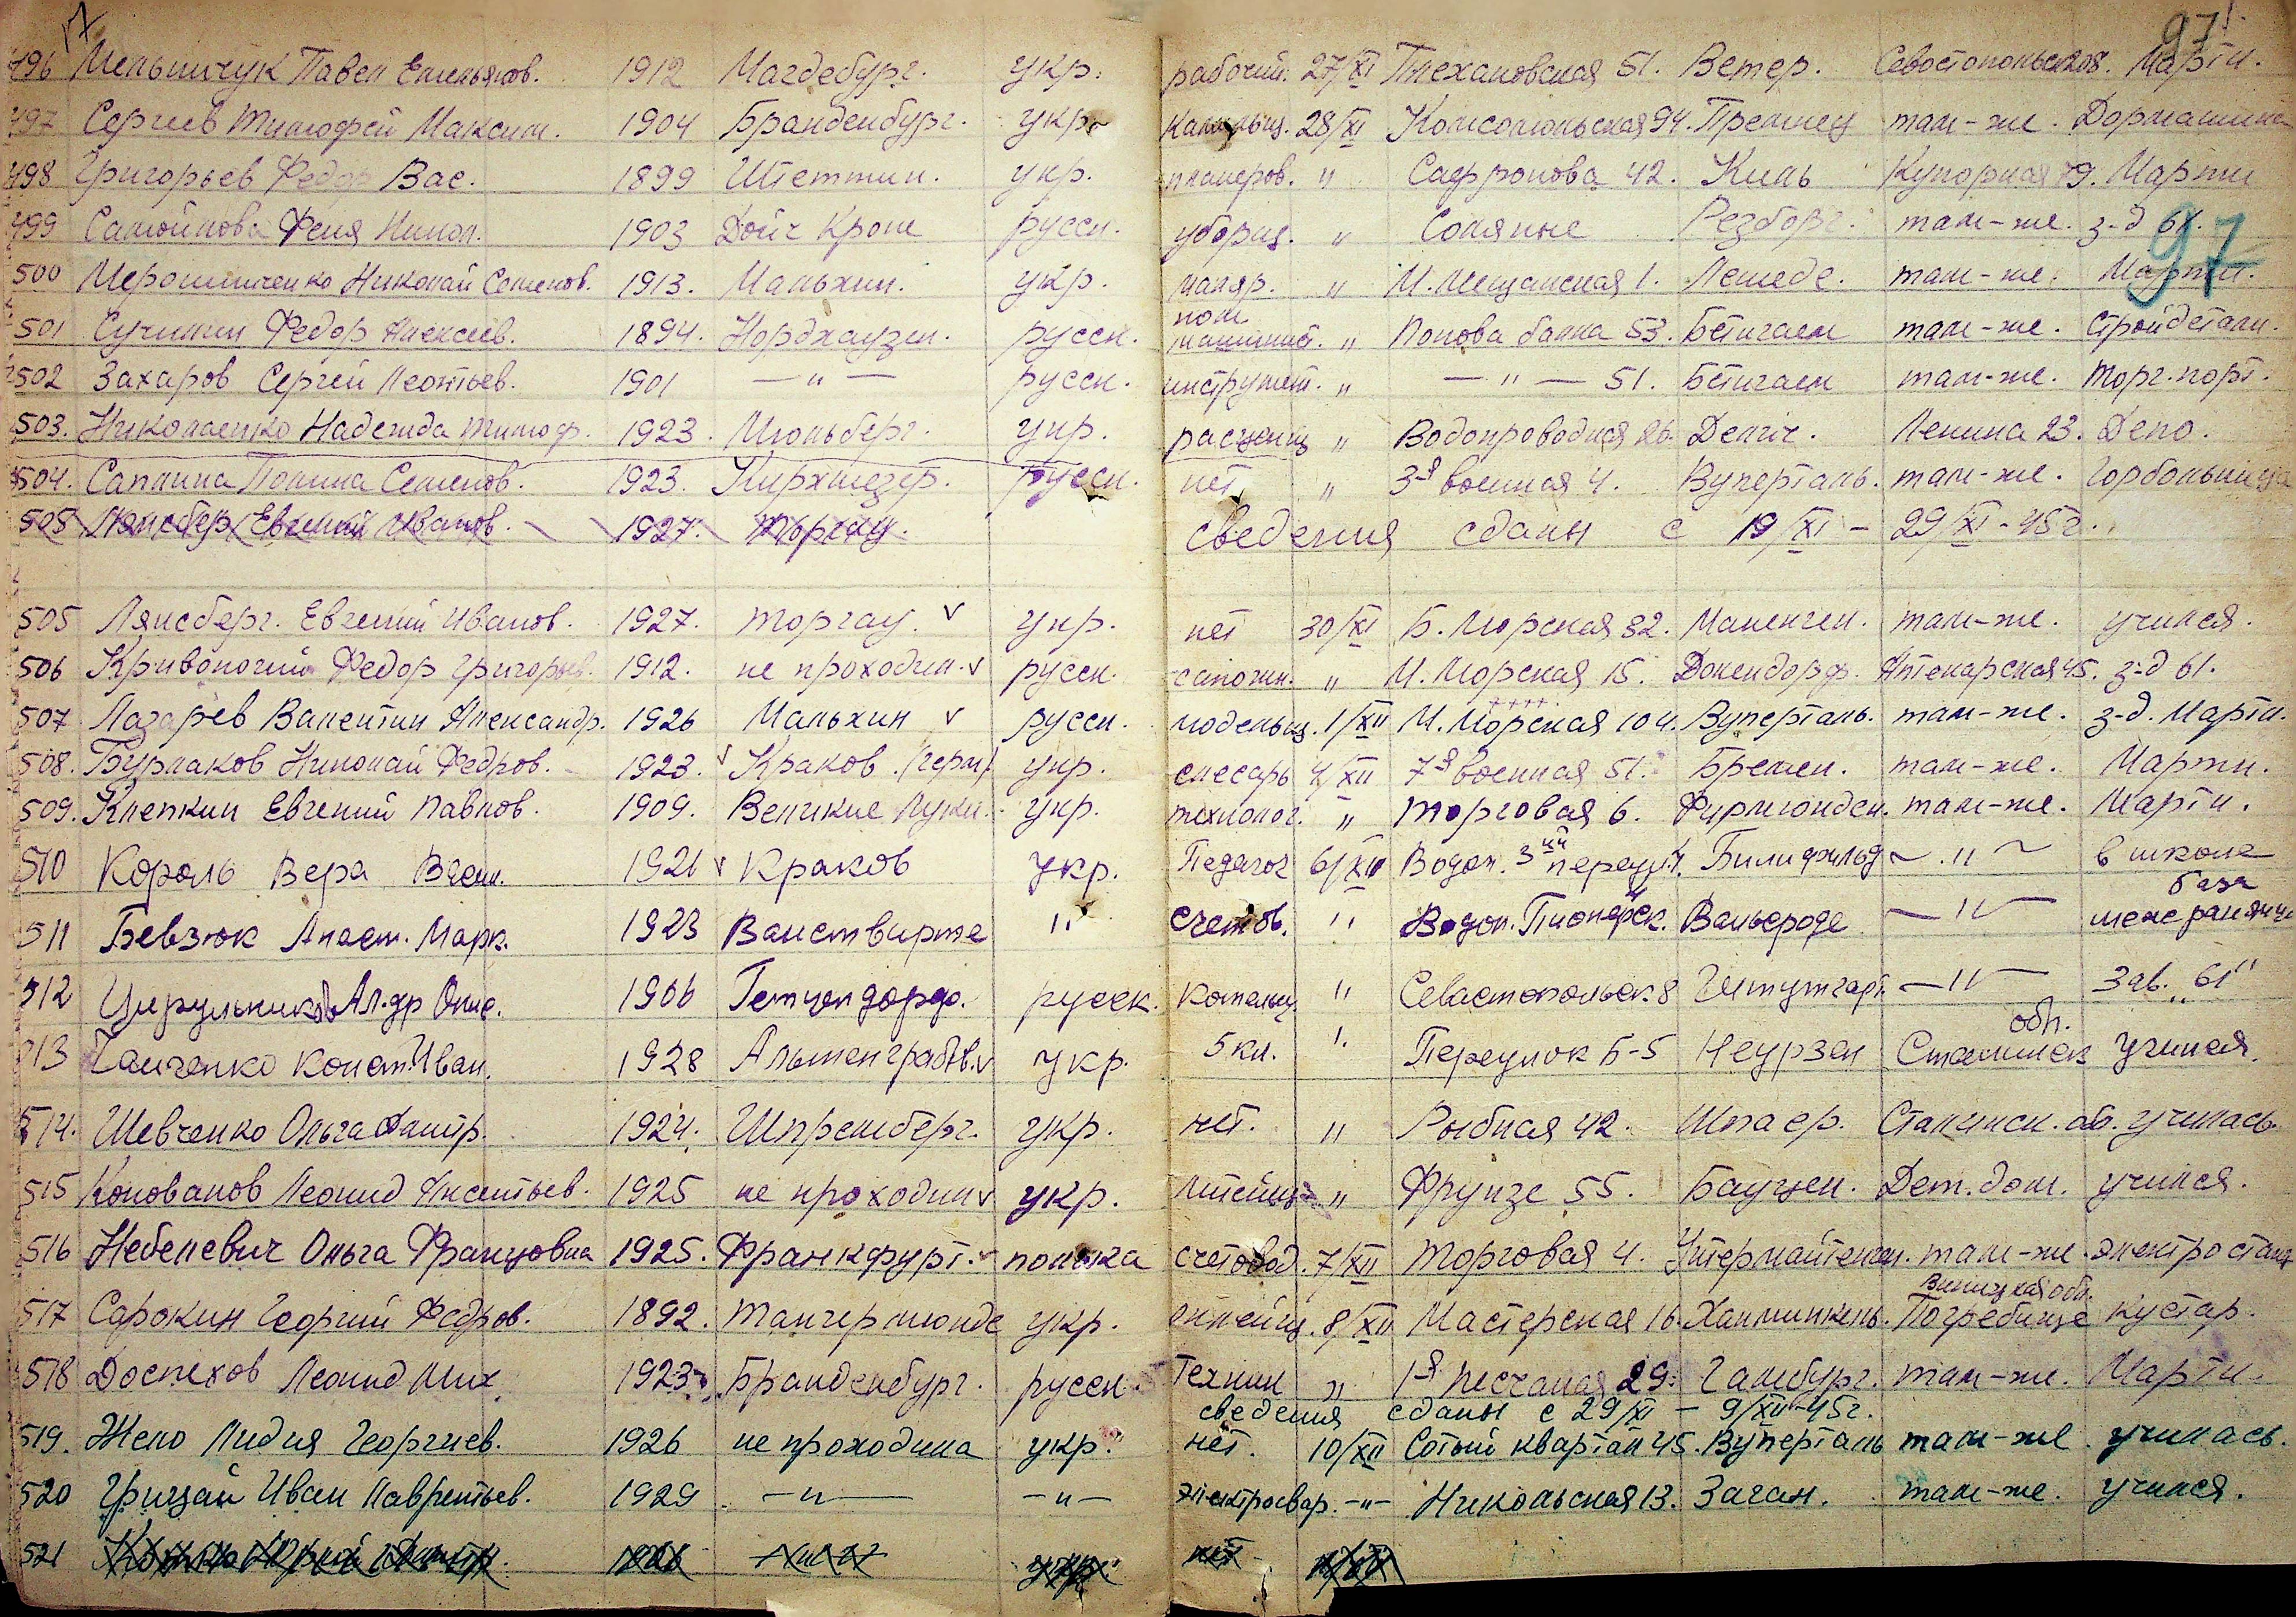 17 97
496 Мельничук Павел Емельянов. 1912 Магдебург. укр. рабочий. 27/XI Плехановская 51. Ветер. Севостопольская 208. Марти.
497 Сергеев Тимофей Максим. 1904 Бранденбург. укр. 28/XI Комсомольская 94. Премнец там-же. Дормашина
498 Григорьев Федор Вас. 1899 Штеттин. укр. планеров. " Сафронова 42. Киль Купорная 79. Марти
499 Самойлова Феня Никол. 1903 Дойч Кроне русск. уборщ. " Соляные Резборг. там-же. з-д 61.
97
500 Мерошниченко Николай Семенов. 1913. Мальхин. укр. маляр. " М. Мещанская 1. там-же. Марти.
501 Сучилин Федор Алексеев. 1894. Нордхаузен. русск. пом машинист. " Попова балка 53. Бетигаем там-же. Стройдетали.
502 Захаров Сергей Леонтьев. 1901 — " — русск. инструмент. " — " — 51. Бетигаем там-же. Торг. порт.
503. Николаенко Надежда Тимоф. 1923. Мюльберг. укр. расценщ " Водопроводная 26. Делич. Ленина 23. Депо.
504. Саплина Полина Семенов. 1923. Кирхмезер. русск. нет " 3-я военная 4. Вуперталь. там-же. Горбольница
505 Лянсберг Евгений Иванов. 1927. Торгау. сведения сданы с 19/XI - 29/XI-45г.
505 Лянсберг. Евгений Иванов. 1927. Торгау. v укр. нет 30/XI Б. Морская 32. Маненген. там-же. учился.
506 Кривоногий Федор Григорьев. 1912. не проходил. v русск. сапожн. " М. Морская 15. Докендорф. Аптекарская 45. з-д 61.
507 Лазарев Валентин Александр. 1926 Мальхин v русск. модельщ. 1/XII М. Морская 104. Вуперталь. там-же. з-д. Марти.
508. Бурлаков Николай Федров. 1923. v Краков (герм). укр. слесарь 4/XII 7-я военная 51. Бремен. там-же. Марти.
509. Клепкин Евгений Павлов. 1909. Великие Луки. укр. технолог. " Торговая 6. там-же. Марти.
510 Король Вера Васил. 1921 v Краков укр. Педагог 6/XII Водоп. 3ий переул. Билифильд — " — в школе
511 Бевзюк Анаст. Марк. 1923 Ванствирте " счетов. " Водоп. Пионерск. Вальероде — " — база
512 Цирульников Ал-др Онис. 1906 Гетцендорф. русск. котельщ. " Севастопольск 8 Штутгарт — " — Зав. "61"
513 Ганченко Конст. Иван. 1928 Альтенграбов. v укр. 5 кл. " Переулок Б-5 Неурзен Сталинск обл. учился.
514. Шевченко Ольга Дмитр. 1924. Шпремберг. укр. нет. " Рыбная 42. Шпаер. Сталинск. об. училась.
515 Коновалов Леонид Анентьев. 1925 не проходил v укр. литейщ " Фрунзе 55. Бауцен. Дет. дом. учился.
516 Небелевич Ольга Францовна 1925. Франкфурт. v полька счетовод. 7/XII Торговая 4. там-же. электростанц
517 Сарокин Георгий Федров. 1892. Тангермюнде укр. литейщ. 8/XII Мастерская 16. Винницкая обл. Погребище кустар.
518 Доспехов Леонид Мих 1923 v Бранденбург. русск. Техник " 1-я песчаная 29. Гамбург. там-же. Марти.
сведения сданы с 29/XI - 9/XII-45г.
519. Жело Лидия Георгиев. 1926 не проходила укр. нет. 10/XII Сотый квартал 45. Вуперталь там-же. училась.
520 Грицай Иван Лаврентьев. 1929 — " — — " — электросвар. — " — Никольская 13. Заган. там-же. учился.
521 1926 — " — укр. нет